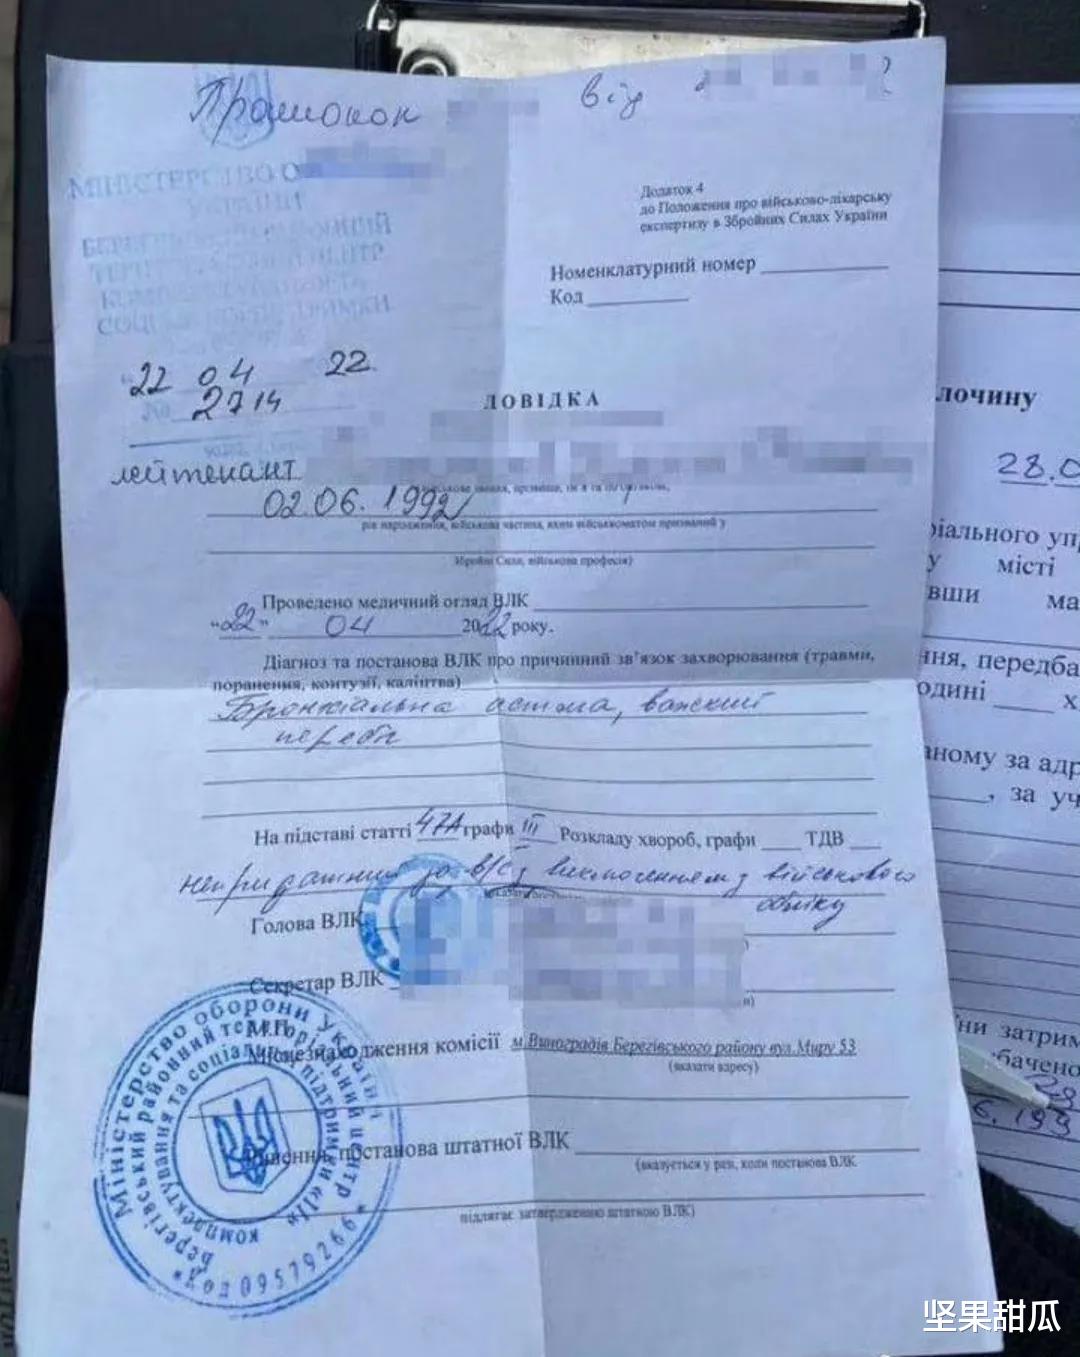 від
МІНІСТЕРСТВО О
УКРАЇНИ
СОЦІ
Додаток 4
до Положення про військово-лікарську
експертизу в Збройних Силах України
Номенклатурний номер
Код
22 04 22
№ 2714
ДОВІДКА
лейтенант
02.06.1992
рік народження, військова частина, яким військкоматом призваний у
Збройні Сили, військова професія)
Проведено медичний огляд ВЛК
"22" 04 2022 року.
Діагноз та постанова ВЛК про причинний зв'язок захворювання (травми,
поранення, контузії, каліцтва)
Бронхіальна астма, важкий
На підставі статті 47А графи III Розкладу хвороб, графи ТДВ
непридатний до в/с з виключенням з військового
обліку
Голова ВЛК
Секретар ВЛК
М.П.
Місцезнаходження комісії м.Виноградів Берегівського району вул.Миру 53
(вказати адресу)
постанова штатної ВЛК
(вказується у разі, коли постанова ВЛК
підлягає затвердженню штатною ВЛК)
Міністерство оборони України
Берегівський районний територіальний центр
комплектування та соціальної підтримки
код 09579269
лочину
28.0
іального упр
у місті
вши ма
ння, передба
одині х
аному за адр
, за уч
ни затрим
бачено
坚果甜瓜